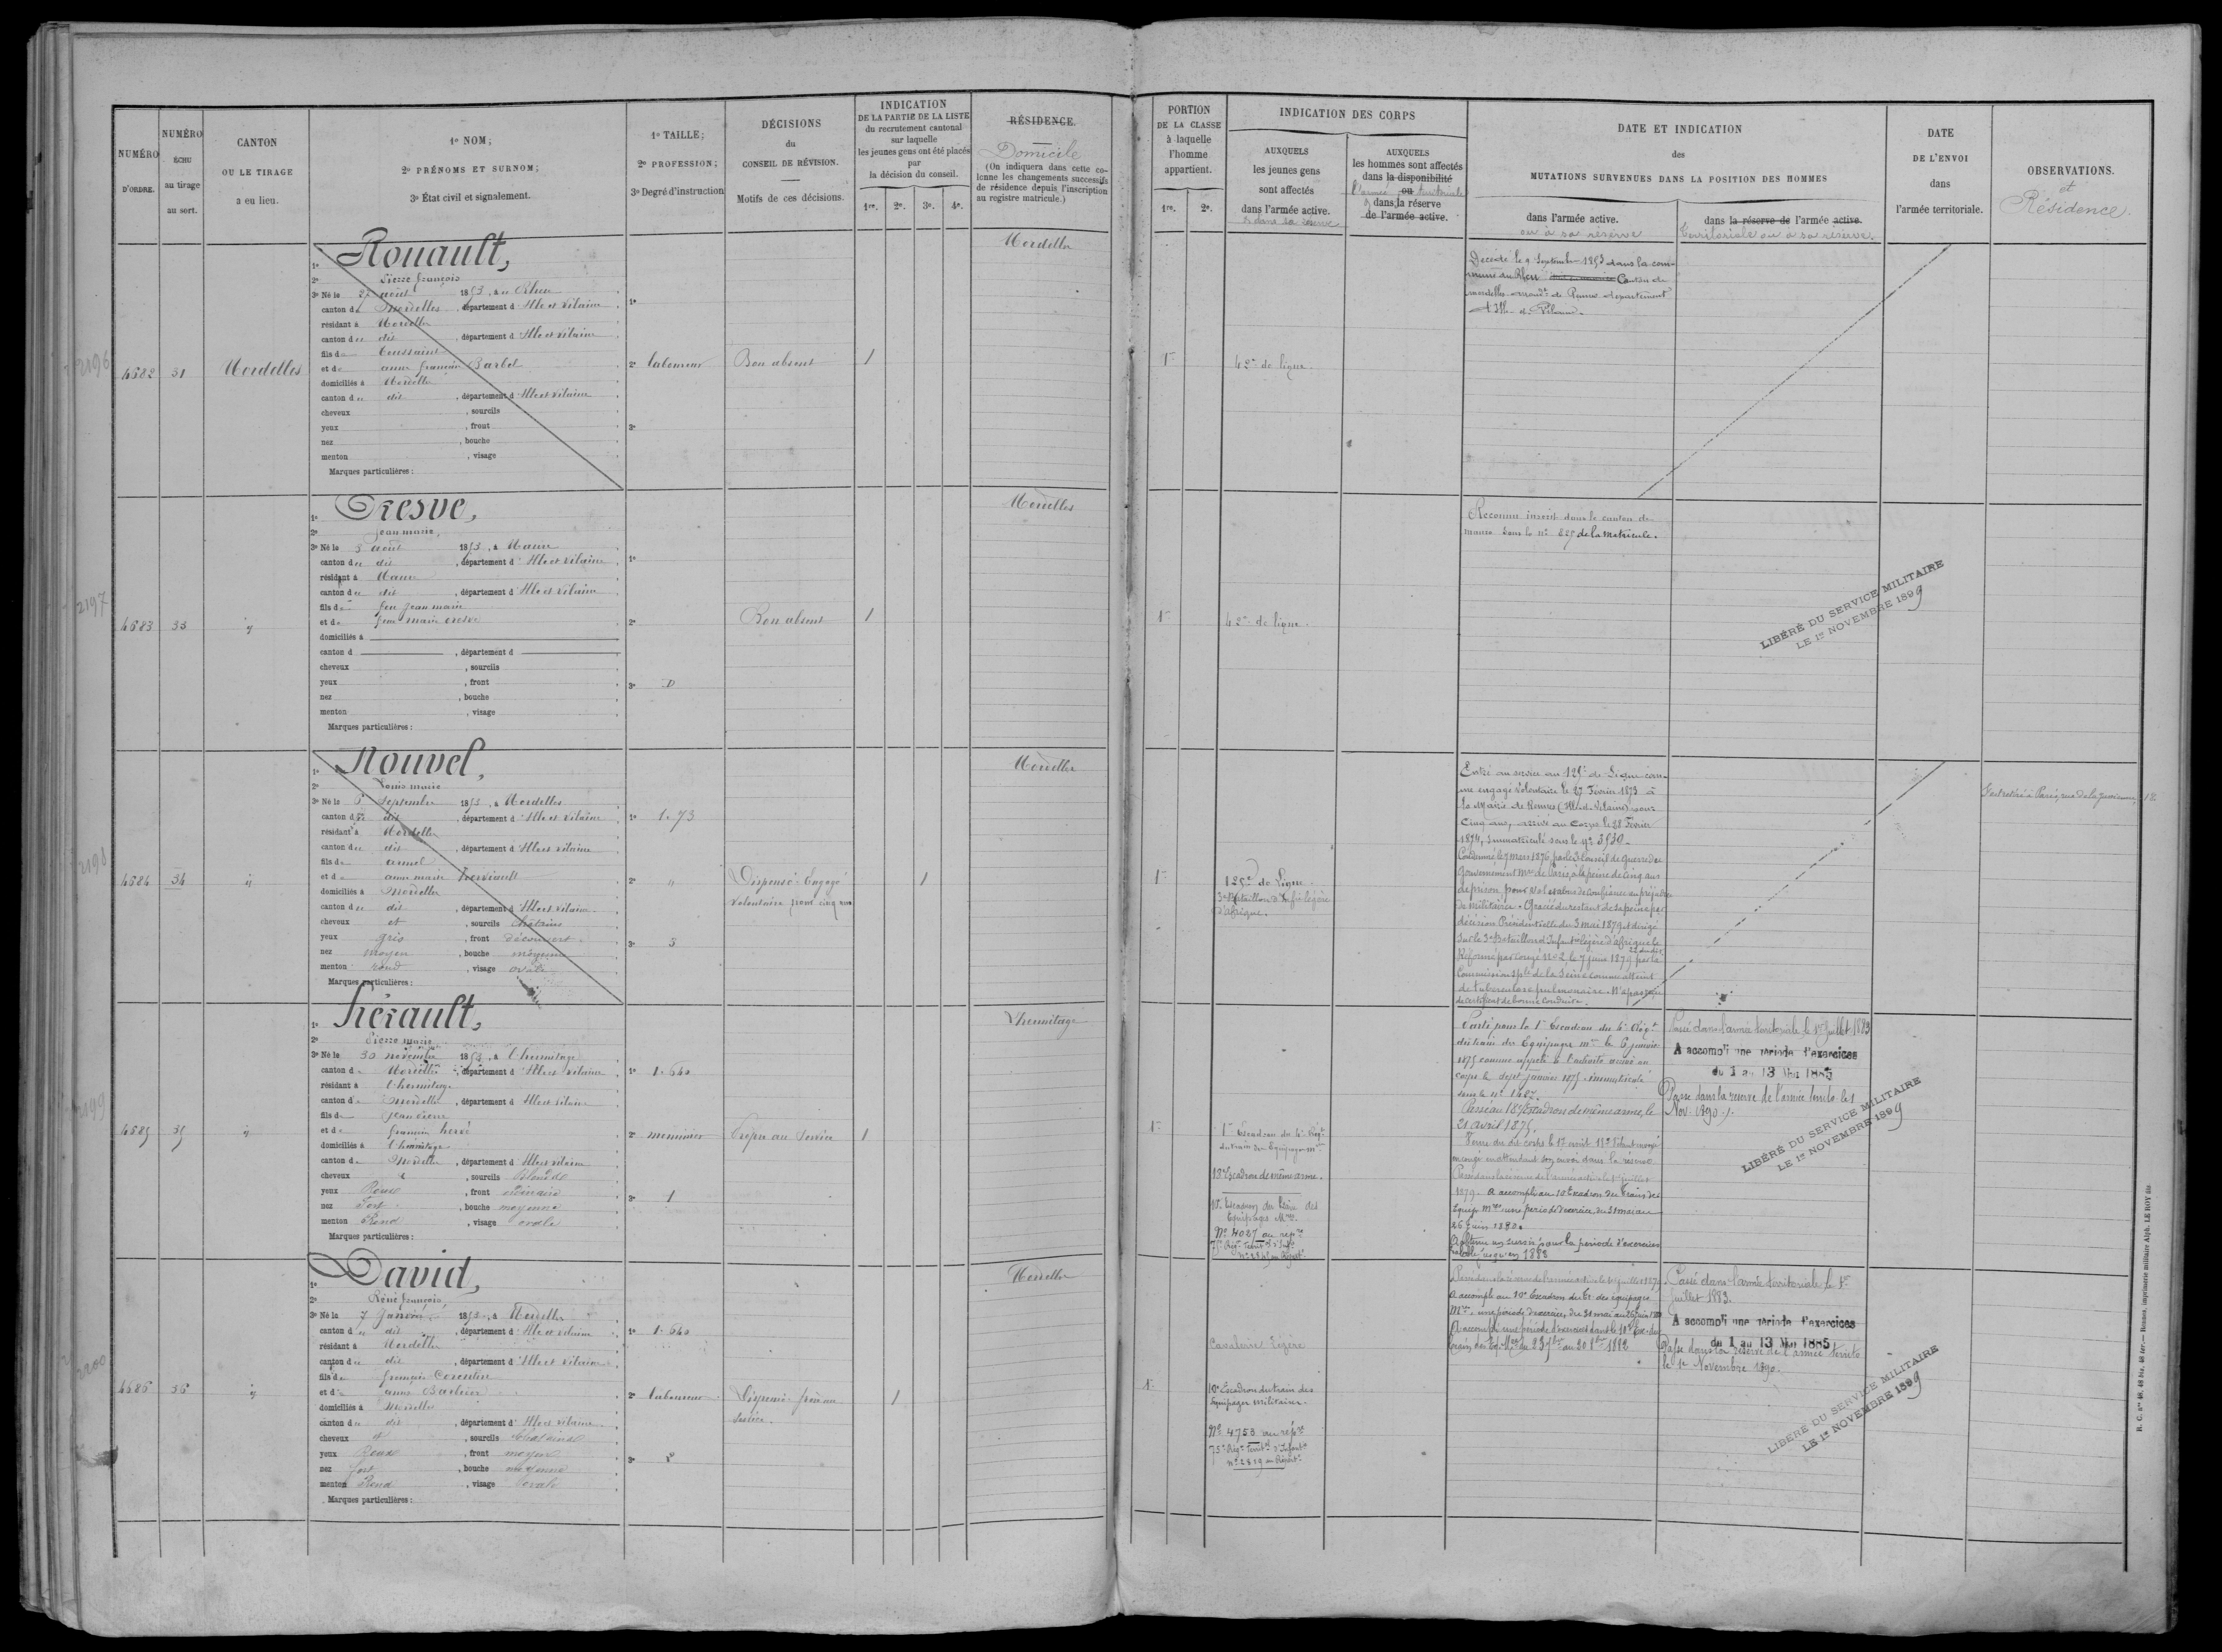 NUMÉRO
D'ORDRE.
NUMÉRO
ÉCHU
au tirage
au sort.
CANTON
OU LE TIRAGE
a eu lieu.
1º NOM;
2º PRÉNOMS ET SURNOM;
3º État civil et signalement.
1º TAILLE;
2º PROFESSION;
3º Degré d'instruction
DÉCISIONS
du
CONSEIL DE RÉVISION.
Motifs de ces décisions.
INDICATION
DE LA PARTIE DE LA LISTE
du recrutement cantonal
sur laquelle
les jeunes gens ont été placés
par
la décision du conseil.
1re. 2e. 3e. 4e.
RÉSIDENCE.
Domicile
(On indiquera dans cette co-
lonne les changements successifs
de résidence depuis l'inscription
au registre matricule.)
PORTION
DE LA CLASSE
à laquelle
l'homme
appartient.
1re. 2e.
INDICATION DES CORPS
AUXQUELS
les jeunes gens
sont affectés
dans l'armée active.
et dans sa réserve
AUXQUELS
les hommes sont affectés
dans la disponibilité
l'armée ou territoriale
et dans la réserve
de l'armée active.
DATE ET INDICATION
des
MUTATIONS SURVENUES DANS LA POSITION DES HOMMES
dans l'armée active.
ou à sa réserve
dans la réserve de l'armée active.
territoriale ou à sa réserve.
DATE
DE L'ENVOI
dans
l'armée territoriale.
OBSERVATIONS.
et
Résidence.
2196
4682 31 Mordelles
1º Rouault,
2º Pierre françois
3º Né le 27 août 1853, à Rheu
canton de Mordelles, département d'Ille et Vilaine
résidant à Mordelles
canton du dit, département d'Ille et Vilaine
fils de Toussaint
et de anne françoise Barbet
domiciliés à Mordelles
canton du dit, département d'Ille et Vilaine
cheveux , sourcils
yeux , front
nez , bouche
menton , visage
Marques particulières :
1º
2º laboureur
3º
Bon absent
1
Mordelles
1re
42e de ligne.
Décédé le 9 Septembre 1853 dans la com-
mune du Rheu Canton de
mordelles arrondt de Rennes département
d'Ille-et-Vilaine.
2197
4683 33
1º Cresve,
2º Jean marie,
3º Né le 3 août 1853, à Maure
canton du dit, département d'Ille et Vilaine
résidant à Maure
canton du dit, département d'Ille et Vilaine
fils de feu Jean marie
et de Jeanne marie cresve
domiciliés à
canton d , département d
cheveux , sourcils
yeux , front
nez , bouche
menton , visage
Marques particulières :
1º
2º
3º D
Bon absent
1
Mordelles
1re
42e de ligne.
Reconnu inscrit dans le canton de
maure sous le nº 827 de la matricule.
LIBÉRÉ DU SERVICE MILITAIRE
LE 1er NOVEMBRE 1899
2198
4684 34
1º Nouvel,
2º Louis marie
3º Né le 5 Septembre 1853, à Mordelles
canton du dit, département d'Ille et Vilaine
résidant à Mordelles
canton du dit, département d'Ille et Vilaine
fils de armel
et de anne marie
domiciliés à Mordelles
canton du dit, département d'Ille et Vilaine
cheveux et , sourcils châtains
yeux gris , front découvert
nez moyen , bouche moyenne
menton rond , visage ovale
Marques particulières :
1º 1.73
2º "
3º 3
Dispensé-Engagé
volontaire pour cinq ans
1
Mordelles
1re
125e de Ligne
3e Bataillon d'Infrie légère
d'afrique.
Entré au service au 125e de Ligne com-
me engagé volontaire le 27 Février 1873 à
la Mairie de Rennes (Ille-et-Vilaine) pour
Cinq ans, arrivé au Corps le 28 Février
1874, immatriculé sous le nº 3930.
Condamné le 7 mars 1876, par le 3e Conseil de guerre du
Gouvernement Mre de Paris, à la peine de cinq ans
de prison pour vol et abus de confiance au préjudice
de militaires. Gracié du restant de sa peine par
décision Présidentielle du 3 mai 1879 et dirigé
sur le 3e Bataillon d'Infantrie légère d'afrique le
Réformé par Congé Nº 2 le 7 juin 1879 par la
Commission Sple de la Seine comme atteint
de tuberculose pulmonaire. N'a pas reçu
de certificat de bonne conduite.
S'est retiré à Paris, rue de la 12
2199
4685 35
1º Hérault,
2º Pierre marie
3º Né le 30 novembre 1853, à l'hermitage
canton de Mordelles, département d'Ille et Vilaine
résidant à l'hermitage
canton de Mordelles, département d'Ille et Vilaine
fils de Jean Pierre
et de françoise hervé
domiciliés à l'hermitage
canton de Mordelles, département d'Ille et Vilaine
cheveux et , sourcils blonds
yeux Roux , front ordinaire
nez Fort , bouche moyenne
menton Rond , visage ovale
Marques particulières :
1º 1.640
2º menuisier
3º 1
Propre au Service
1
l'hermitage
1re
1er Escadron du 4e Régt
du train des Equipages mres
18e Escadron de même arme.
10e Escadron du train des
Equipages Mres.
Nº 4027 au repre
75e Régt Territal d'Infie
Parti pour le 1er Escadron du 4e Régt
du train des Equipages mres le 6 janvier
1875 comme appelé à l'activité arrivé au
corps le sept janvier 1875 immatriculé
sous le nº 1487.
Passé au 18e Escadron de même arme, le
21 avril 1875.
en congé en attendant son envoi dans la réserve
Passé dans la réserve de l'armée active le 1er juillet
1879. A accompli au 10e Escadron du train des
Equips Mres une période d'exercices, du 31 mai au
26 Juin 1880.
A obtenu un sursis pour la période d'exercices
valable jusqu'en 1883
Passé dans l'armée territoriale le 1er Juillet 1883
A accompli une période d'exercices
du 1 au 13 Mai 1885
Passé dans la réserve de l'armée territo. le 1
Nov. 1890.
LIBÉRÉ DU SERVICE MILITAIRE
LE 1er NOVEMBRE 1899
2200
4686 36
1º David,
2º René françois
3º Né le 7 Janvier 1853, à Mordelles
canton du dit, département d'Ille et Vilaine
résidant à Mordelles
canton du dit, département d'Ille et Vilaine
fils de françois Corentin
et de anne
domiciliés à Mordelles
canton du dit, département d'Ille et Vilaine
cheveux et , sourcils châtains
yeux Roux , front moyen
nez fort , bouche moyenne
menton Rond , visage ovale
Marques particulières :
1º 1.640
2º laboureur
3º 2
Dispensé-frère au
service.
1
Mordelles
1re
Cavalerie légère
10e Escadron du train des
Equipages militaires.
Nº 4753 au repre
75e Régt Territal d'Infantie
nº 2819 au Répre
Passé dans la réserve de l'armée active le 1er juillet 1879
A accompli au 10e Escadron du Tr. des équipages
Mres, une période d'exercices, du 31 mai au 26 Juin 1880
A accompli une période d'exercices dans le 10e Esc. du
train des Eq. Mres du 23 7bre au 20 8bre 1882
Passé dans l'armée territoriale le 1er
Juillet 1883.
A accompli une période d'exercices
du 1 au 13 Mai 1885
Passé dans la réserve de l'armée territo
le 1er Novembre 1890.
LIBÉRÉ DU SERVICE MILITAIRE
LE 1er NOVEMBRE 1899
R. C. nos 48, 48 bis, 48 ter. — Rennes, imprimerie militaire Alph. LE ROY fils